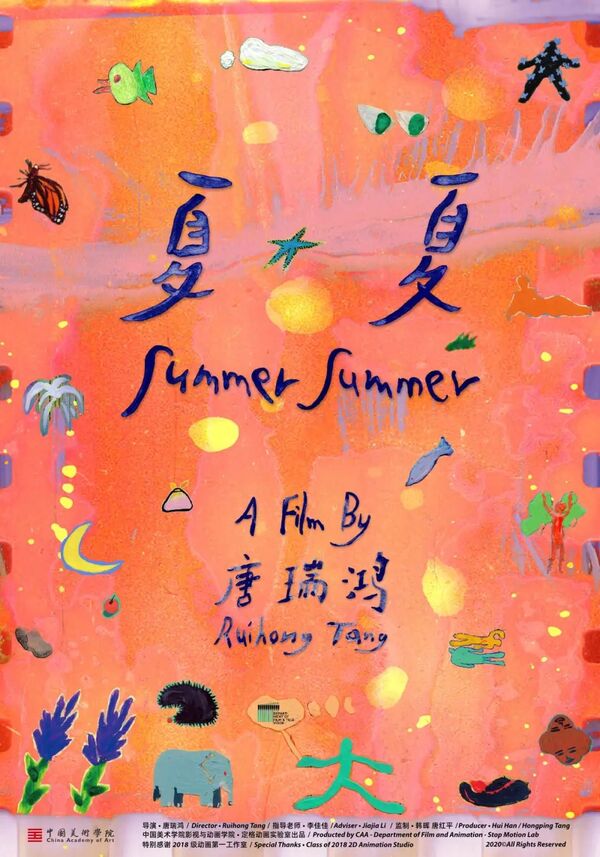 夏 夏
Summer Summer
A Film By
唐瑞鸿
Ruihong Tang
中国美术学院
China Academy of Art
导演·唐瑞鸿 / Director·Ruihong Tang / 指导老师·李佳佳 /Adviser·Jiajia Li / 监制·韩晖 唐红平 /Producer·Hui Han / Hongping Tang
中国美术学院影视与动画学院·定格动画实验室出品 / Producted by CAA - Department of Film and Animation - Stop Motion Lab
特别感谢 2018 级动画第一工作室 / Special Thanks·Class of 2018 2D Animation Studio
2020©All Rights Reserved